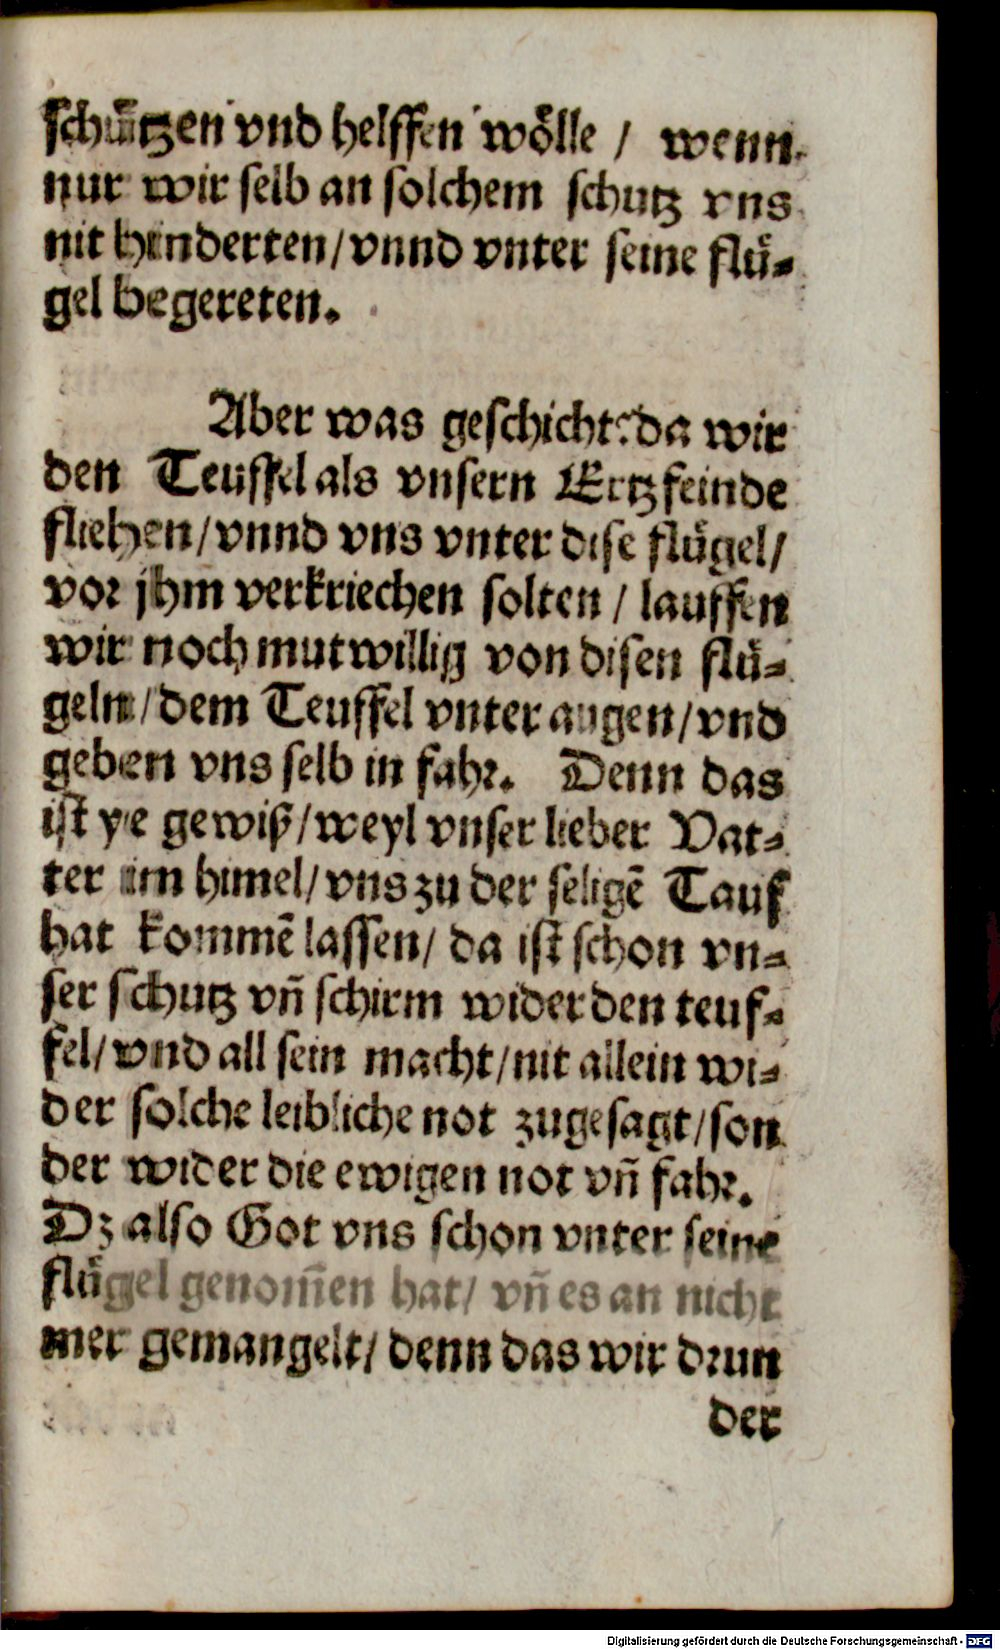 schützen vnd helffen wölle / wenn
nur wir selb an solchem schutz vns
nit hinderten/vnnd vnter seine flü-
gel begereten.
Aber was geschicht? da wir
den Teuffel als vnsern Ertzfeinde
fliehen/vnnd vns vnter dise flügel/
vor jhm verkriechen solten / lauffen
wir noch mutwillig von disen flü-
geln/dem Teuffel vnter augen/vnd
geben vns selb in fahr. Denn das
ist ye gewiß/weyl vnser lieber Vat-
ter im himel/vns zu der seligē Tauf
hat kommē lassen/ da ist schon vn-
ser schutz vn̄ schirm wider den teuf-
fel/vnd all sein macht/nit allein wi-
der solche leibliche not zugesagt/son
der wider die ewigen not vn̄ fahr.
Dz also Got vns schon vnter seine
flügel genom̄en hat/ vn̄ es an nicht
mer gemangelt/ denn das wir drun
der
Digitalisierung gefördert durch die Deutsche Forschungsgemeinschaft - DFG